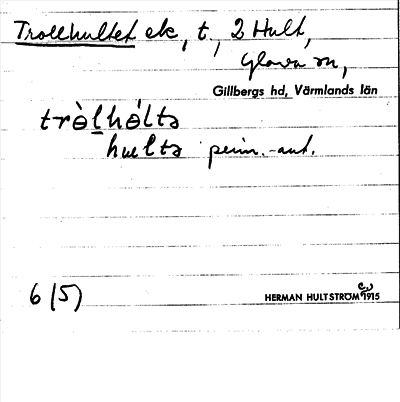 Trollhultet elc, t., 2 Hult,
Glava sn,
Gillbergs hd, Värmlands län
tròlhóltə
hultə
6 (5)
HERMAN HULTSTRÖM 1915